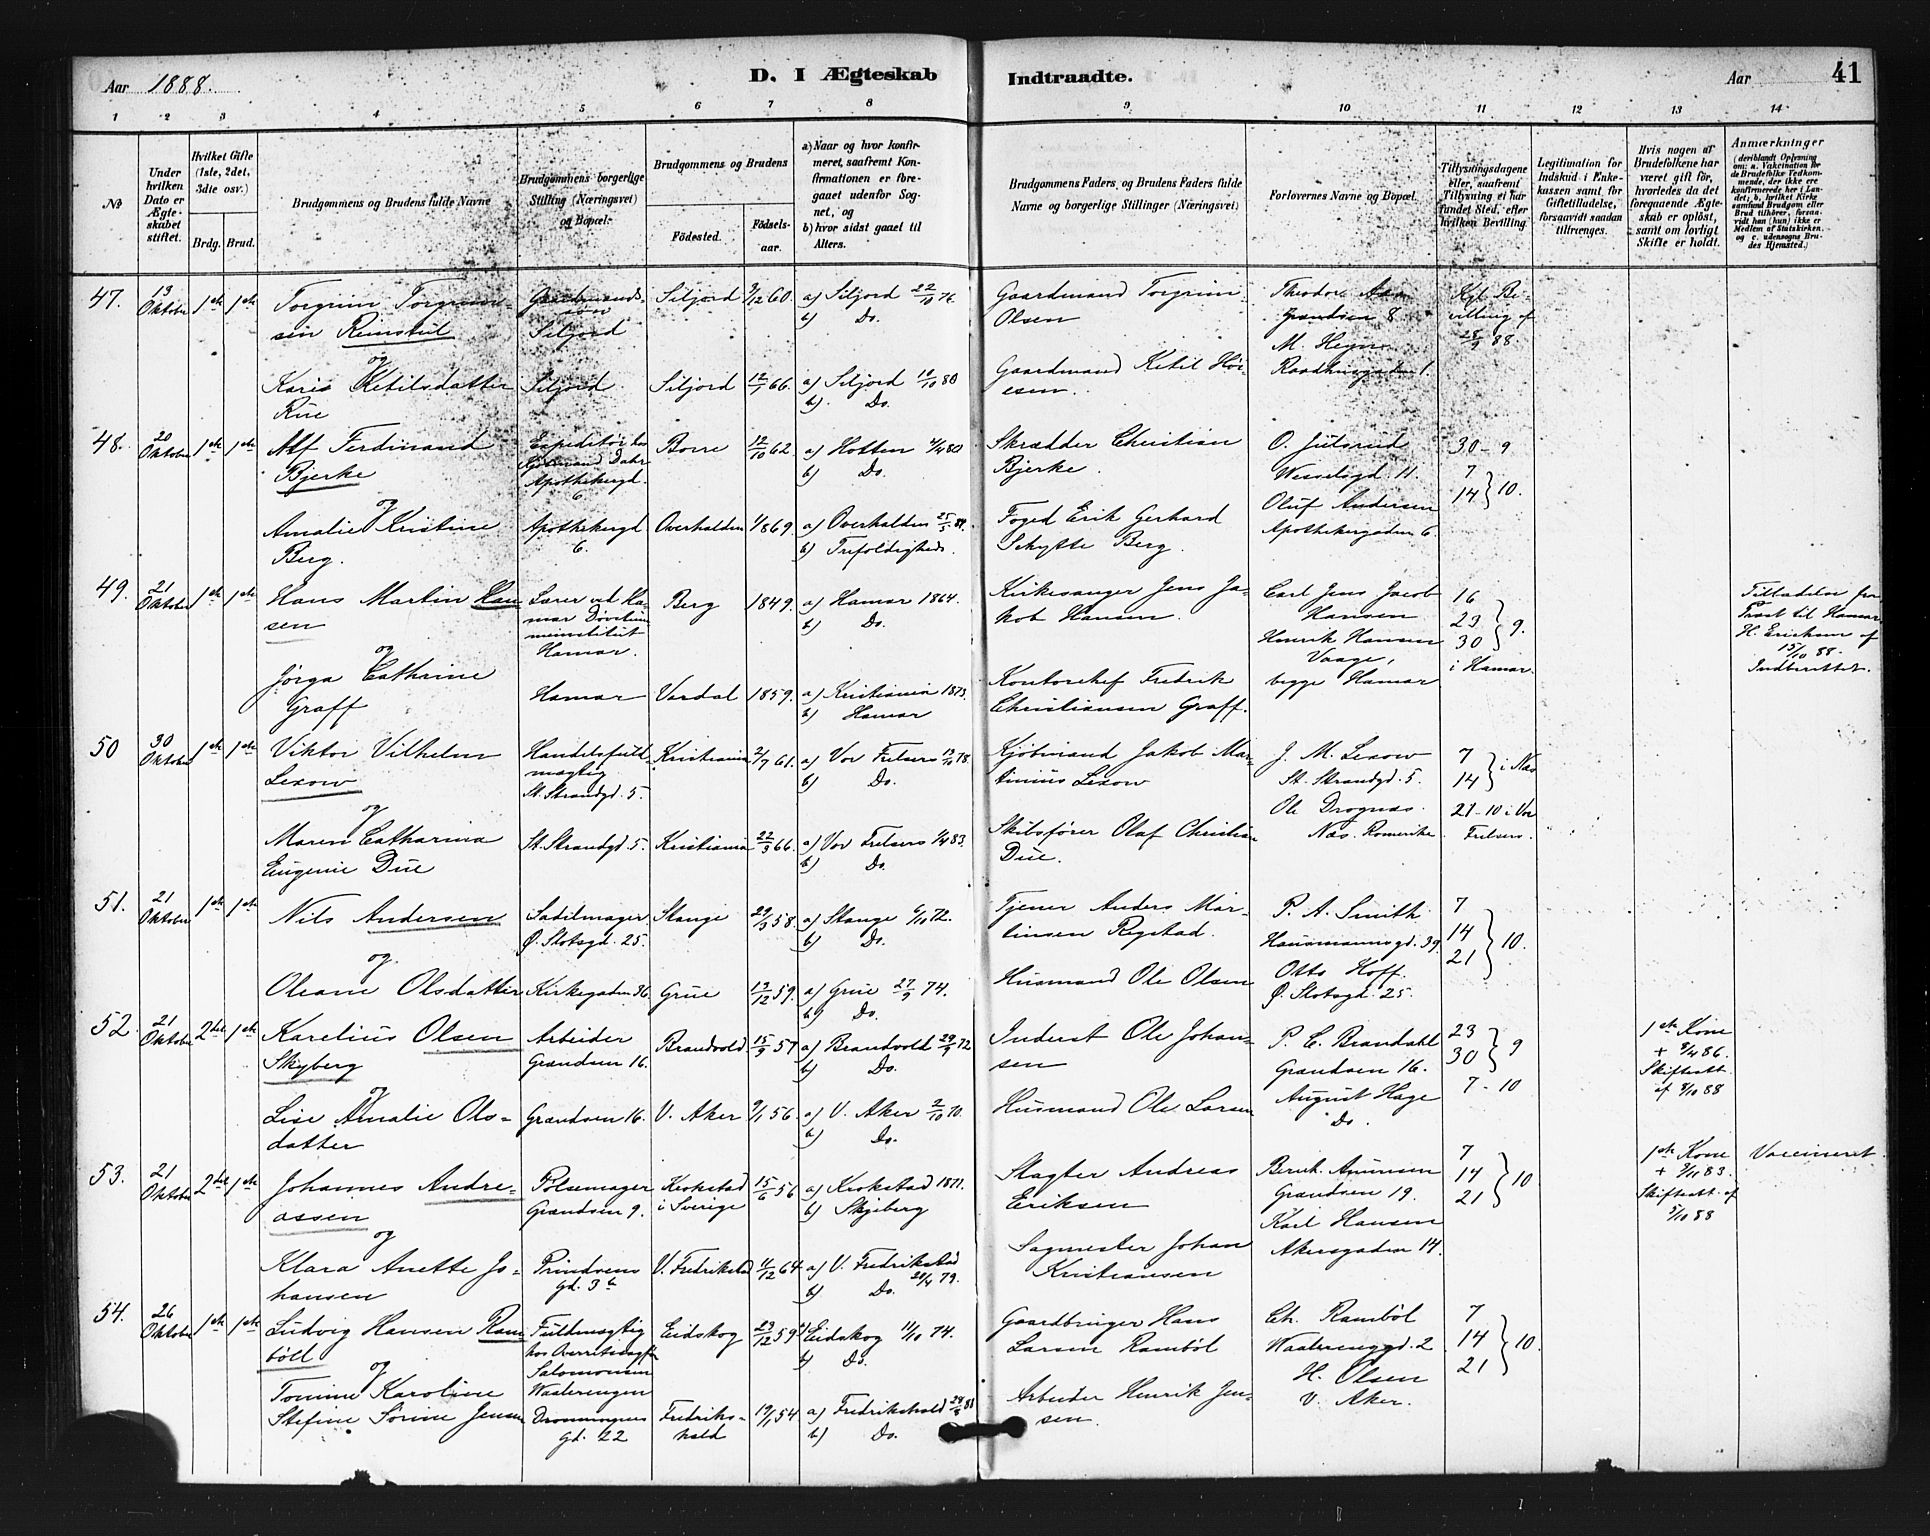 Aar 1888.
D. I Ægteskab Indtraadte.
Aar 41
1 2 3 4 5 6 7 8 9 10 11 12 13 14
No
Under hvilken Dato er Ægteskabet stiftet.
Hvilket Gifte (1ste, 2det, 3die osv.)
Brdg. Brud.
Brudgommens og Brudens fulde Navne
Brudgommens borgerlige Stilling (Næringsvei) og Bopæl.
Brudgommens og Brudens
Födested. Födselsaar.
a) Naar og hvor konfirmeret, saafremt Konfirmationen er foregaaet udenfor Sognet, og
b) hvor sidst gaaet til Alters.
Brudgommens Faders, og Brudens Faders fulde Navne og borgerlige Stillinger (Næringsvei)
Forlovernes Navne og Bopæl.
Tillysningsdagene eller, saafremt Tillysning ei har fundet Sted, efter hvilken Bevilling.
Legitimation for Indskud i Enkekassen samt for Giftetilladelse, forsaavidt saadan tiltrænges.
Hvis nogen af Brudefolkene har været gift för, hvorledes da det foregaaende Ægteskab er oplöst, samt om lovligt Skifte er holdt.
Anmærkninger
(deriblandt Oplysning om: a. Vakcination for de Brudefolks Vedkommende, der ikke ere konfirmerede her i Landet; b. hvilket Kirkesamfund Brudgom eller Brud tilhörer, forsaavidt han (hun) ikke er Medlem af Statskirken. og c. udensogns Brudes Hjemsted.)
47. 13 Oktober 1ste 1ste
Torgrim Torgrimsen Reinskul
Gaardmandssøn Siljord
Siljord 3/12 60.
a) Siljord 22/10 76
b) Do.
Gaardmand Torgrim Olsen
Theodor
Grændsen 8
M. Heyn
Raadhusgaden 1.
Kgl. Bevilling af 28/9 88.
og
Karis Ketilsdatter Rue
Siljord
Siljord 12/7 66.
a) Siljord 10/10 80
b) Do.
Gaardmand Ketil
48. 20 Oktober 1ste 1ste
Alf Ferdinand Bjerke
Expeditør hos
Dahr
Apothekergd. 6.
Borre 12/10 62.
a) Hotten 4/4 80
b) Do.
Skrædder Christian Bjerke.
O. Jutsrud
Wesselsgd. 11.
Oluf Andersen
Apothekergaden 6.
30 - 9
7
14 } 10.
og
Amalie Kristine Berg.
Apothekergd 6.
Overhalden 1/8 69.
a) Overhalden 25/5 84.
b) Trefoldigheds.
Foged Erik Gerhard Schytte Berg.
49. 21 Oktober 1ste 1ste
Hans Martin Hansen
Lærer ved Hamar Døvstummeinstitut Hamar.
Berg 1849.
a) Hamar 1864.
b) Do.
Kirkesanger Jens Jakob Hansen.
Carl Jens Jacob Hansen
Henrik Hansen Vaage,
begge Hamar
16
23
30 } 9.
i Hamar.
Tilladelse fra
Prost til Hamar
H. Erichsen af
15/10 88.
Indberettet.
og
Jørga Cathrine Graff
Hamar
Verdal 1859.
a) Kristiania 1873.
b) Hamar
Kontorchef Fredrik Christiansen Graff.
50 30 Oktober 1ste 1ste
Viktor Vilhelm Lexow
Handelsfuldmægtig
St. Strandgd. 5.
Kristiania 2/7 61.
a) Vor Frelsers 13/10 78.
b) Do.
Kjøbmand Jakob Martinius Lexow
J. M. Lexow
St. Strandgd. 5.
Ole Drognæs.
Næs. Romerike.
7
14 } i Næs
21-10 i Vor Frelsers.
og
Maren Catharina Eugenie Due
St. Strandgd 5.
Kristiania 22/3 66.
a) Vor Frelsers 1/4 83.
b) Do.
Skibsfører Olaf Christian Due.
51. 21 Oktober 1ste 1ste
Nils Andersen
Sadelmager
Ø. Slotsgd. 25.
Stange 29/3 58.
a) Stange 6/10 72.
b) Do.
Tjener Anders Martinsen Regstad.
P. A. Smith.
Hausmannsgd. 39
Otto Hoff.
Ø. Slotsgd. 25.
7
14
21 } 10.
og.
Oleane Olsdatter
Kirkegaden 36.
Grue 13/12 59.
a) Grue 27/9 74.
b) Do.
Husmand Ole Olsen
52. 21 Oktober 2det 1ste
Karelius Olsen Skyberg
Arbeider
Grændsen 16.
Brandvold 15/9 57
a) Brandvold 29/9 72
b) Do.
Inderst Ole Johansen
P. C. Brandahl
Grændsen 16.
August Hage
Do.
23
30 } 9
7 - 10
1ste Kone
+ 8/4 86.
Skifteatt.
af 9/10 88
og
Lise Amalie Olsdatter
Grændsen 16.
V. Aker 9/1 56.
a) V. Aker 2/10 70.
b) Do.
Husmand Ole Larsen
53. 21 Oktober 2det 1ste
Johannes Andreassen
Pølsemager
Grændsen 9.
Krokstad i Sverige 15/6 56
a) Krokstad 1871.
b) Skjeberg
Slagter Andreas Eriksen
Bernh. Amunsen
Grændsen 19.
Karl Hansen
Akersgaden 14.
7
14
21 } 10
1ste Kone
+ 3/11 83.
Skifteatt. af
5/10 88
Vaccineret.
og
Klara Anette Johansen
Prindsens gd. 3b
V. Fredrikstad 11/12 64
a) V. Fredrikstad 20/4 79.
b) Do.
Sagmester Johan Kristiansen
54. 26 Oktober 1ste 1ste
Ludvig Hansen Ramböll
Fuldmægtig hos Overretssagfr
Salomonsen
Waalerengen
Eidskog 23/12 59
a) Eidskog 11/10 74.
b) Do.
Gaardbruger Hans Larsen Ramböl
Ch. Ramböl
Waalerenggd. 2
H. Olsen
V. Aker.
7
14
21 } 10.
og
Tomine Karoline Stefine Sørine Jensen
Dronningens gd. 22
Fredrikshald 19/1 54
a) Fredrikshald
b) Do.
Arbeider Henrik Jensen.